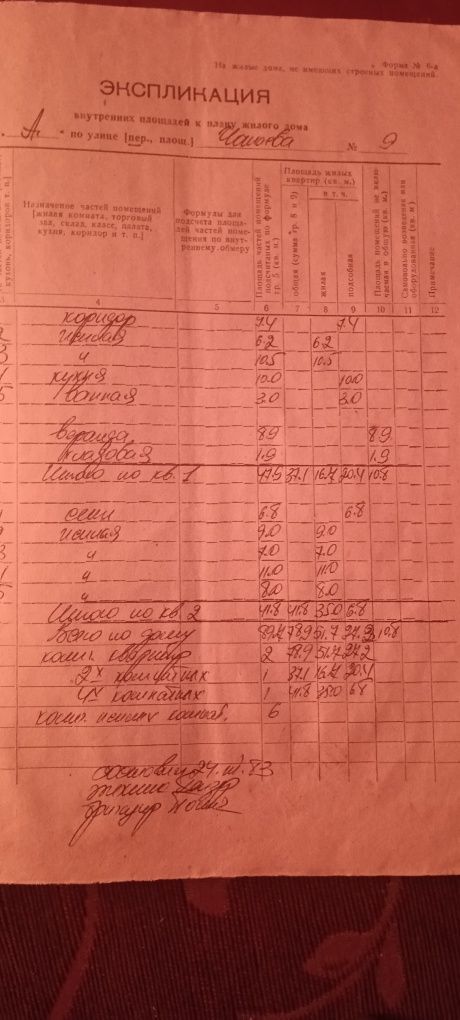 Форма № 6-а
На жилые дома, не имеющих строеных помещений.
ЭКСПЛИКАЦИЯ
внутренних площадей к плану жилого дома
"А" по улице [пер., площ.] № 9
кухонь, коридоров и т. п.]
Назначение частей помещений [жилая комната, торговый зал, склад, класс, палата, кухня, коридор и т. п.]
Формулы для подсчета площадей частей помещения по внутреннему обмеру
Площадь частей помещений подсчитаных по формуле гр. 5 (кв. м.)
Площадь жилых квартир (кв. м.)
общая (сумма гр. 8 и 9)
в т. ч.
жилая
подсобная
Площадь помещений не включаемая в общую (кв. м)
Самовольно возведенная или оборудованная (кв. м)
Примечание
3 4 5 6 7 8 9 10 11 12
коридор 7.4 7.4
жилая 6.2 6.2
" 10.5 10.5
кухня 10.0 10.0
ванная 3.0 3.0
веранда 8.9 8.9
кладовая 1.9 1.9
Итого по кв. 1 47.9 37.1 16.7 20.4 10.8
сени 6.8 6.8
жилая 9.0 9.0
" 7.0 7.0
" 11.0 11.0
" 8.0 8.0
Итого по кв 2 41.8 41.8 35.0 6.8
Всего по дому 89.7 78.9 51.7 27.2 10.8
колич. квартир 2 78.9 51.7 27.2
2х комнатных 1 37.1 16.7 20.4
4х комнатных 1 41.8 35.0 6.8
колич. жилых комнат. 6
составил 24.III.83
техник
бригадир